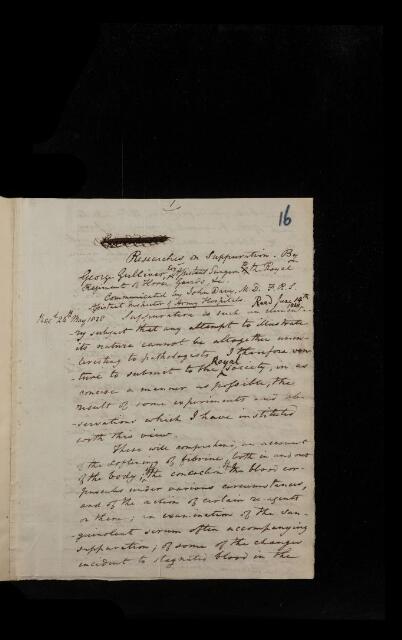 1
16
Researches on Suppuration. By
George Gulliver, Esqr Assistant Surgeon to the Royal
Regiment of Horse Guards &c.
Communicated by John Davy, M.D. F.R.S.
Assistant Inspector of Army Hospitals. Read June 14th
Recd 26th May 1838
Suppuration is such an
-ry subject that any attempt to illustrate
its nature cannot be altogether unin-
teresting to pathologists. I therefore ven-
ture to submit to the Royal Society, in as
concise a manner as possible, the
result of some experiments and ob-
-servations which I have instituted
with this view.
These will comprehend, an account
of the softening of fibrine, both in and out
of the body; of the the blood cor-
puscules under various circumstances,
and of the action of certain re-agents
on them; an examination of the san-
guinolent serum often accompanying
suppuration; of some of the changes
incident to stagnated blood in the